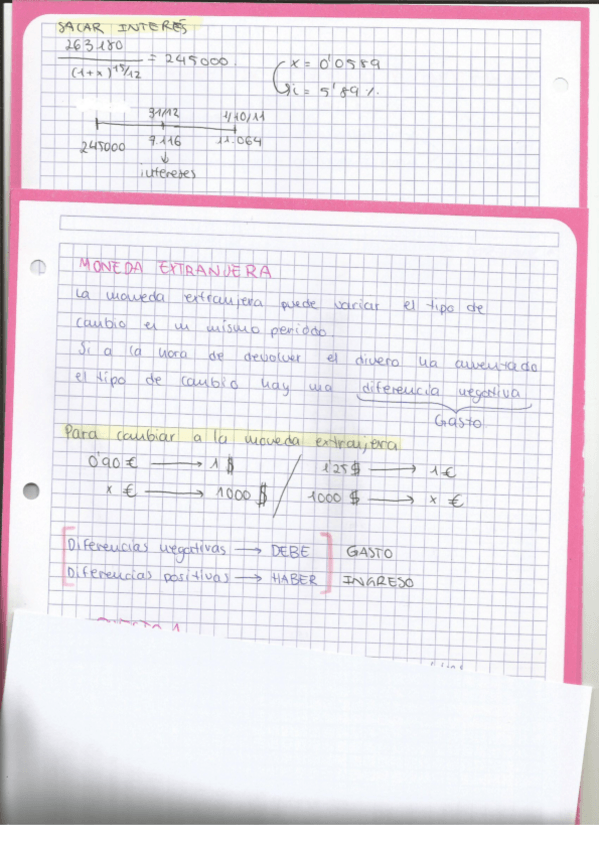 SACAR INTERÉS
263180
(1+x)^15/12 = 245000.
x = 0'0589
i = 5'89%.
31/12 1/10/11
245000 7.116 11.064
intereses
MONEDA EXTRANJERA
La moneda extranjera puede variar el tipo de
cambio en un mismo periodo.
Si a la hora de devolver el dinero ha aumentado
el tipo de cambio hay una diferencia negativa
Gasto
Para cambiar a la moneda extranjera
0'90 € → 1 $ / 1'25 $ → 1 €
x € → 1000 $ / 1000 $ → x €
Diferencias negativas → DEBE GASTO
Diferencias positivas → HABER INGRESO